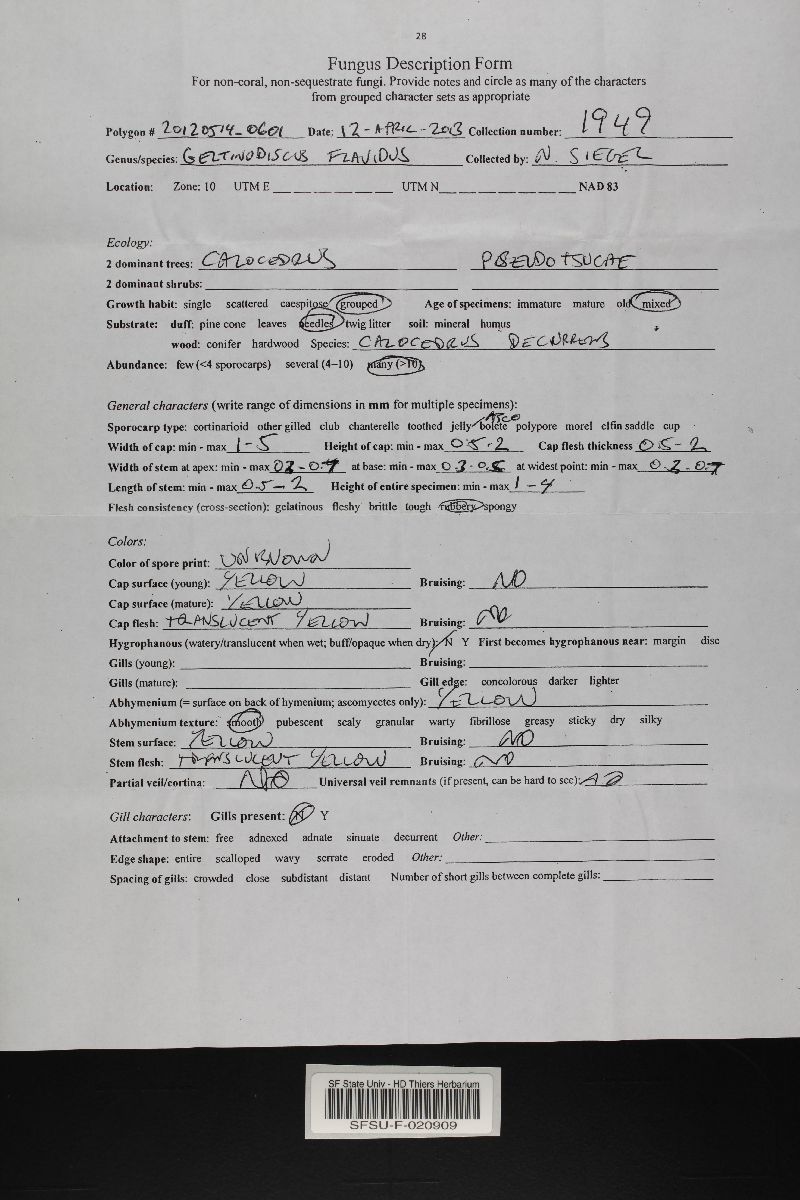 28
Fungus Description Form
For non-coral, non-sequestrate fungi. Provide notes and circle as many of the characters
from grouped character sets as appropriate
Polygon # 20120514-0601 Date: 12-APRIL-2013 Collection number: 1949
Genus/species: GELTINODISCUS FLAVIDUS Collected by: N. SIEGEL
Location: Zone: 10 UTM E UTM N NAD 83
Ecology:
2 dominant trees: CALOCEDRUS PSEUDOTSUGAE
2 dominant shrubs:
Growth habit: single scattered caespitose grouped Age of specimens: immature mature old mixed
Substrate: duff: pine cone leaves needles twig litter soil: mineral humus
wood: conifer hardwood Species: CALOCEDRUS DECURRENS
Abundance: few (<4 sporocarps) several (4-10) many (>10)
General characters (write range of dimensions in mm for multiple specimens):
ASCO
Sporocarp type: cortinarioid other gilled club chanterelle toothed jelly bolete polypore morel elfin saddle cup
Width of cap: min - max 1-5 Height of cap: min - max 0.5-2 Cap flesh thickness 0.5-2
Width of stem at apex: min - max at base: min - max at widest point: min - max
Length of stem: min - max 0.5-2 Height of entire specimen: min - max 1-4
Flesh consistency (cross-section): gelatinous fleshy brittle tough rubbery spongy
Colors:
Color of spore print: UNKNOWN
Cap surface (young): YELLOW Bruising: NO
Cap surface (mature): YELLOW
Cap flesh: TRANSLUCENT YELLOW Bruising: NO
Hygrophanous (watery/translucent when wet; buff/opaque when dry): N Y First becomes hygrophanous near: margin disc
Gills (young): Bruising:
Gills (mature): Gill edge: concolorous darker lighter
Abhymenium (= surface on back of hymenium; ascomycetes only): YELLOW
Abhymenium texture: smooth pubescent scaly granular warty fibrillose greasy sticky dry silky
Stem surface: YELLOW Bruising: NO
Stem flesh: TRANSLUCENT YELLOW Bruising: NO
Partial veil/cortina: NO Universal veil remnants (if present, can be hard to see): NO
Gill characters: Gills present: N Y
Attachment to stem: free adnexed adnate sinuate decurrent Other:
Edge shape: entire scalloped wavy serrate eroded Other:
Spacing of gills: crowded close subdistant distant Number of short gills between complete gills:
SF State Univ - HD Thiers Herbarium
SFSU-F-020909